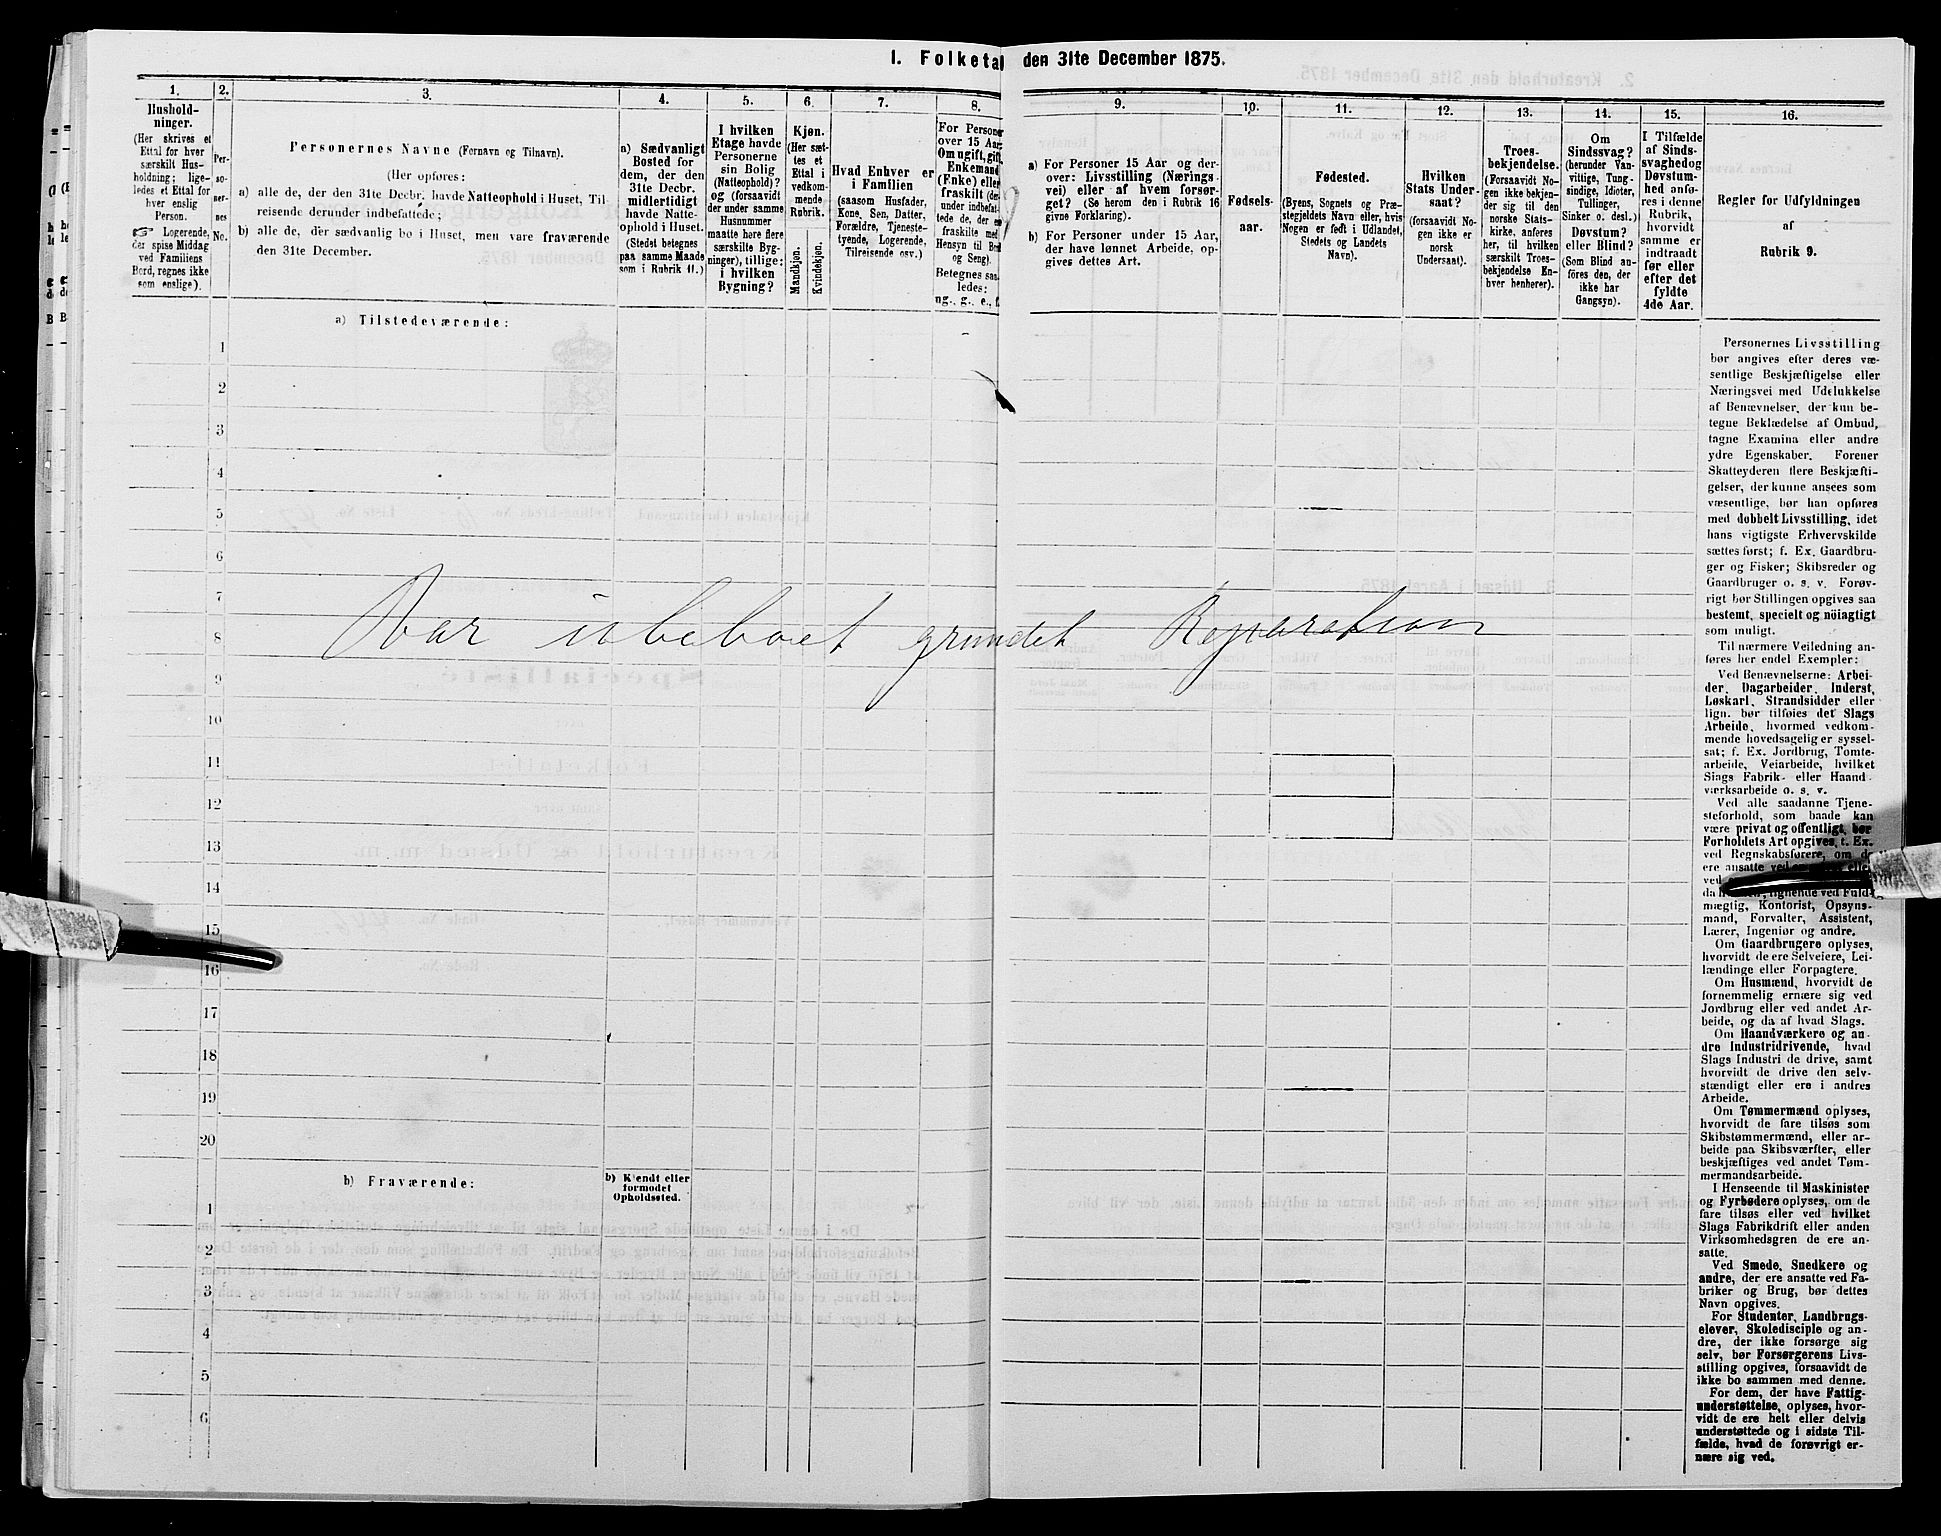 I. Folketal den 31te December 1875.
1.
Husholdninger.
(Her skrives et
Ettal for hver
særskilt Husholdning;
ligeledes et Ettal for
hver enslig
Person.
Logerende,
der spise Middag
ved Familiens
Bord, regnes ikke
som enslige).
2.
Personernes
No.
3.
Personernes Navne (Fornavn og Tilnavn).
(Her opføres:
a) alle de, der den 31te Decbr. havde Natteophold i Huset, Tilreisende
derunder indbefattede;
b) alle de, der sædvanlig bo i Huset, men vare fraværende
den 31te December.
4.
a) Sædvanligt
Bosted for
dem, der den
31te Decbr.
midlertidigt
havde Natteophold
i Huset.
(Stedet betegnes
paa samme Maade
som i Rubrik 11.)
5.
I hvilken
Etage havde
Personerne
sin Bolig
(Natteophold)?
og (forsaavidt
der under samme
Husnummer
maatte høre flere
særskilte Bygninger),
tillige:
i hvilken
Bygning?
6.
Kjøn.
(Her sættes
et
Ettal i
vedkommende
Rubrik.
Mandkjøn.
Kvindekjøn.
7.
Hvad Enhver er
i Familien
(saasom Husfader,
Kone, Søn, Datter,
Forældre, Tjenestetyende,
Logerende,
Tilreisende osv.)
8.
For Personer
over 15 Aar:
Om ugift, gift,
Enkemand
(Enke) eller
fraskilt
Betegnes saaledes:
ug., g., e., f.
9.
a) For Personer 15 Aar og derover:
Livsstilling (Næringsvei)
eller af hvem forsørget?
(Se herom den i Rubrik 16
givne Forklaring).
b) For Personer under 15 Aar,
der have lønnet Arbeide, opgives
dettes Art.
10.
Fødselsaar.
11.
Fødested.
(Byens, Sognets og Præstegjeldets
Navn eller, hvis
Nogen er født i Udlandet,
Stedets og Landets
Navn).
12.
Hvilken
Stats Undersaat?
(forsaavidt Nogen
ikke er
norsk
Undersaat).
13.
Troesbekjendelse.
(Forsaavidt Nogen
ikke bekjender
sig til den
norske Statskirke,
anføres
her, til hvilken
særskilt Troesbekjendelse
Enhver
henhører).
14.
Om
Sindssvag?
(herunder Vanvittige,
Tungsindige,
Idioter,
Tullinger,
Sinker o. desl.)
Døvstum?
eller Blind?
(Som Blind anføres
den, der
ikke har
Gangsyn).
15.
I Tilfælde
af Sindssvaghed
og
Døvstumhed
anføres
i denne
Rubrik,
hvorvidt
samme er
indtraadt
før eller
efter det
fyldte
4de Aar.
16.
Regler for Udfyldningen
af
Rubrik 9.
a) Tilstedeværende:
1
2
3
4
5
6
7
8
9
10
11
12
13
14
15
16
17
18
19
20
Var ubeboet grundet Reparation
b) Fraværende:
b) Kjendt eller
formodet
Opholdssted.
1
2
3
4
5
6
Personernes Livsstilling
bør angives efter deres væsentlige
Beskjæftigelse eller
Næringsvei med Udelukkelse
af Benævnelser, der kun betegne
Beklædelse af Ombud,
tagne Examina eller andre
ydre Egenskaber. Forener
Skatteyderen flere Beskjæftigelser,
der kunne ansees som
væsentlige, bør han opføres
med dobbelt Livsstilling, idet
hans vigtigste Erhvervskilde
sættes først; f. Ex. Gaardbruger
og Fisker; Skibsreder og
Gaardbruger o. s. v. Forøvrigt
bør Stillingen opgives saa
bestemt, specielt og nøiagtigt
som muligt.
Til nærmere Veiledning anføres
her endel Exempler:
Ved Benævnelserne: Arbeider,
Dagarbeider, Inderst,
Løskarl, Strandsidder eller
lign. bør tilføies det Slags
Arbeide, hvormed vedkommende
hovedsagelig er sysselsat;
f. Ex. Jordbrug, Tomtearbeide,
Veiarbeide, hvilket
Slags Fabrik- eller Haandværksarbeide
o. s. v.
Ved alle saadanne Tjenesteforhold,
som baade kan
være privat og offentligt, bør
Forholdets Art opgives, f. Ex.
ved Regnskabsførere, om de
ere ansatte ved
lignende ved Fuldmægtig,
Kontorist, Opsynsmand,
Forvalter, Assistent,
Lærer, Ingeniør og andre.
Om Gaardbrugere oplyses,
hvorvidt de ere Selveiere, Leilændinge
eller Forpagtere.
Om Husmænd, hvorvidt de
fornemmelig ernære sig ved
Jordbrug eller ved andet Arbeide,
og da af hvad Slags.
Om Haandværkere og andre
Industridrivende, hvad
Slags Industri de drive, samt
hvorvidt de drive den selvstændigt
eller ere i andres
Arbeide.
Om Tømmermænd oplyses,
hvorvidt de fare tilsøs som
Skibstømmermænd, eller arbeide
paa Skibsværfter, eller
beskjæftiges ved andet Tømmermandsarbeide.
I Henseende til Maskinister
og Fyrbødere oplyses, om de
fare tilsøs eller ved hvilket
Slags Fabrikdrift eller anden
Virksomhedsgren de ere ansatte.
Ved Smede, Snedkere og
andre, der ere ansatte ved Fabriker
og Brug, bør dettes
Navn opgives.
For Studenter, Landbrugselever,
Skoledisciple og andre,
der ikke forsørge sig
selv, bør Forsørgerens Livsstilling
opgives, forsaavidt de
ikke bo sammen med denne.
For dem, der have Fattigunderstøttelse,
oplyses, hvorvidt
de ere helt eller delvis
understøttede og i sidste Tilfælde,
hvad de forøvrigt ernære
sig ved.